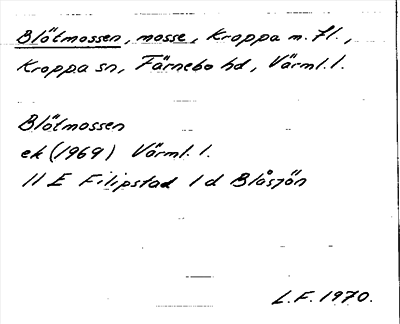 Blötmossen, mosse, Kroppa m. fl.,
Kroppa sn, Färnebo hd, Värml. l.
Blötmossen
ek (1969) Värml. l.
11 E Filipstad 1 d Blåsjön
L.F. 1970.